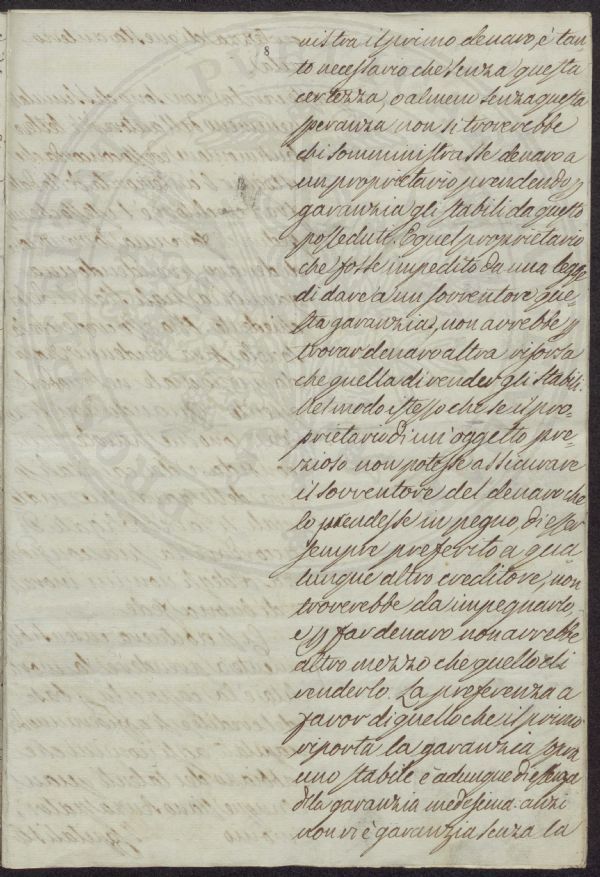 8
nistra il primo denaro, è tan-
to necessario che senza questa
certezza, o almeno senza questa
speranza non si troverebbe
chi somministrasse denaro a
un proprietario prendendo p
garanzia gli stabili da questo
posseduti. E quel proprietario
che fosse impedito da una legge
di dare a un sovventore que-
sta garanzia, non avrebbe p
trovar denaro altra risorsa
che quella di vender gli stabili.
Nel modo istesso che se il pro-
prietario di un oggetto pre-
zioso non potesse assicurare
il sovventore del denaro che
lo prendesse in pegno, di esser
sempre preferito a qua-
lunque altro creditore, non
troverebbe da impegnarlo,
e p far denaro non avrebbe
altro mezzo che quello di
venderlo. La preferenza a
favor di quello che il primo
riporta la garanzia sovra
uno stabile è adunque di essenza
della garanzia medesima: anzi
non vi è garanzia senza la